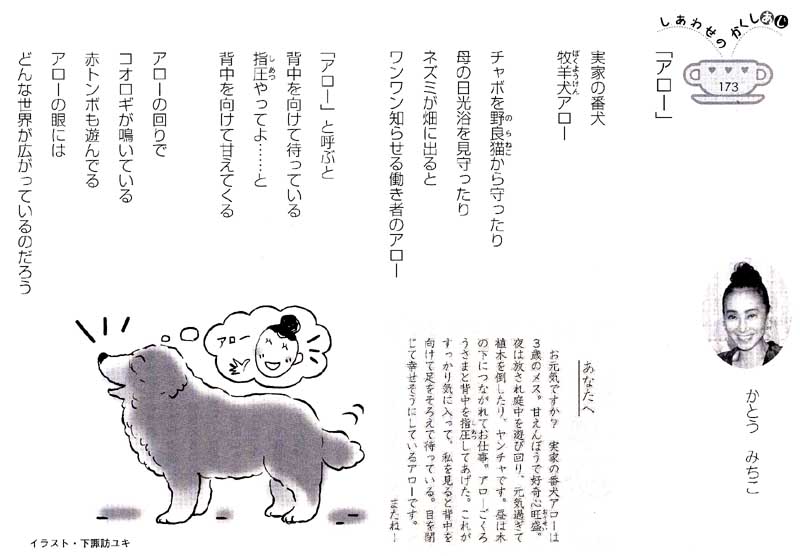 しあわせのかくしあじ
173
「アロー」
かとう　みちこ
実家の番犬
ぼくようけん
牧羊犬アロー
のらねこ
チャボを野良猫から守ったり
母の日光浴を見守ったり
ネズミが畑に出ると
ワンワン知らせる働き者のアロー
「アロー」と呼ぶと
背中を向けて待っている
しあつ
指圧やってよ……と
背中を向けて甘えてくる
アローの回りで
コオロギが鳴いている
赤トンボも遊んでる
アローの眼には
どんな世界が広がっているのだろう
あなたへ
お元気ですか？　実家の番犬アローは
3歳のメス。甘えんぼうで好奇心旺盛。
夜は放され庭中を遊び回り、元気過ぎて
植木を倒したり、ヤンチャです。昼は木
の下につながれてお仕事。アローごくろ
うさまと背中を指圧してあげた。これが
すっかり気に入って、私を見ると背中を
向けて足をそろえて待っている。目を閉
じて幸せそうにしているアローです。
またねー
アロー
イラスト・下諏訪ユキ